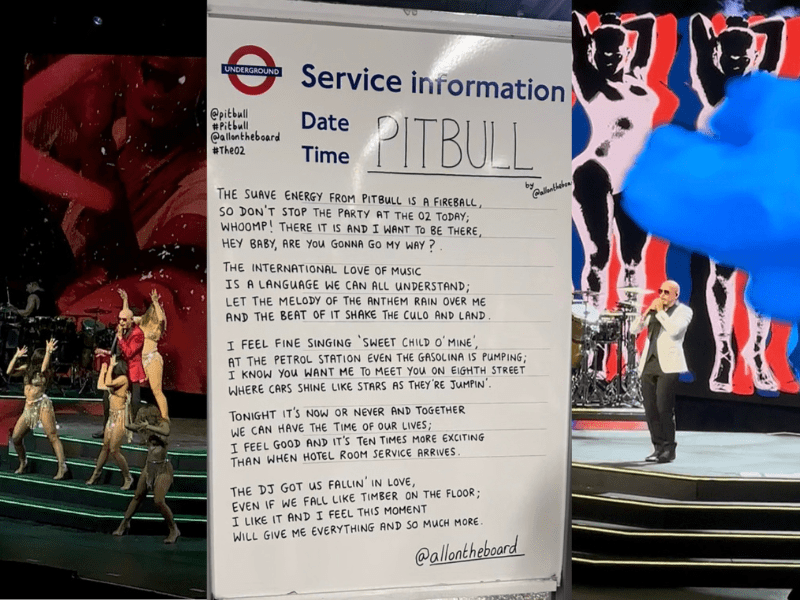 UNDERGROUND
Service information
@pitbull
#Pitbull
@allontheboard
#TheO2
Date
Time
PITBULL
by
THE SUAVE ENERGY FROM PITBULL IS A FIREBALL,
SO DON'T STOP THE PARTY AT THE O2 TODAY;
WHOOMP! THERE IT IS AND I WANT TO BE THERE,
HEY BABY, ARE YOU GONNA GO MY WAY?
THE INTERNATIONAL LOVE OF MUSIC
IS A LANGUAGE WE CAN ALL UNDERSTAND;
LET THE MELODY OF THE ANTHEM RAIN OVER ME
AND THE BEAT OF IT SHAKE THE CULO AND LAND.
I FEEL FINE SINGING 'SWEET CHILD O' MINE',
AT THE PETROL STATION EVEN THE GASOLINA IS PUMPING;
I KNOW YOU WANT ME TO MEET YOU ON EIGHTH STREET
WHERE CARS SHINE LIKE STARS AS THEY'RE JUMPIN'.
TONIGHT IT'S NOW OR NEVER AND TOGETHER
WE CAN HAVE THE TIME OF OUR LIVES;
I FEEL GOOD AND IT'S TEN TIMES MORE EXCITING
THAN WHEN HOTEL ROOM SERVICE ARRIVES.
THE DJ GOT US FALLIN' IN LOVE,
EVEN IF WE FALL LIKE TIMBER ON THE FLOOR;
I LIKE IT AND I FEEL THIS MOMENT
WILL GIVE ME EVERYTHING AND SO MUCH MORE.
@allontheboard